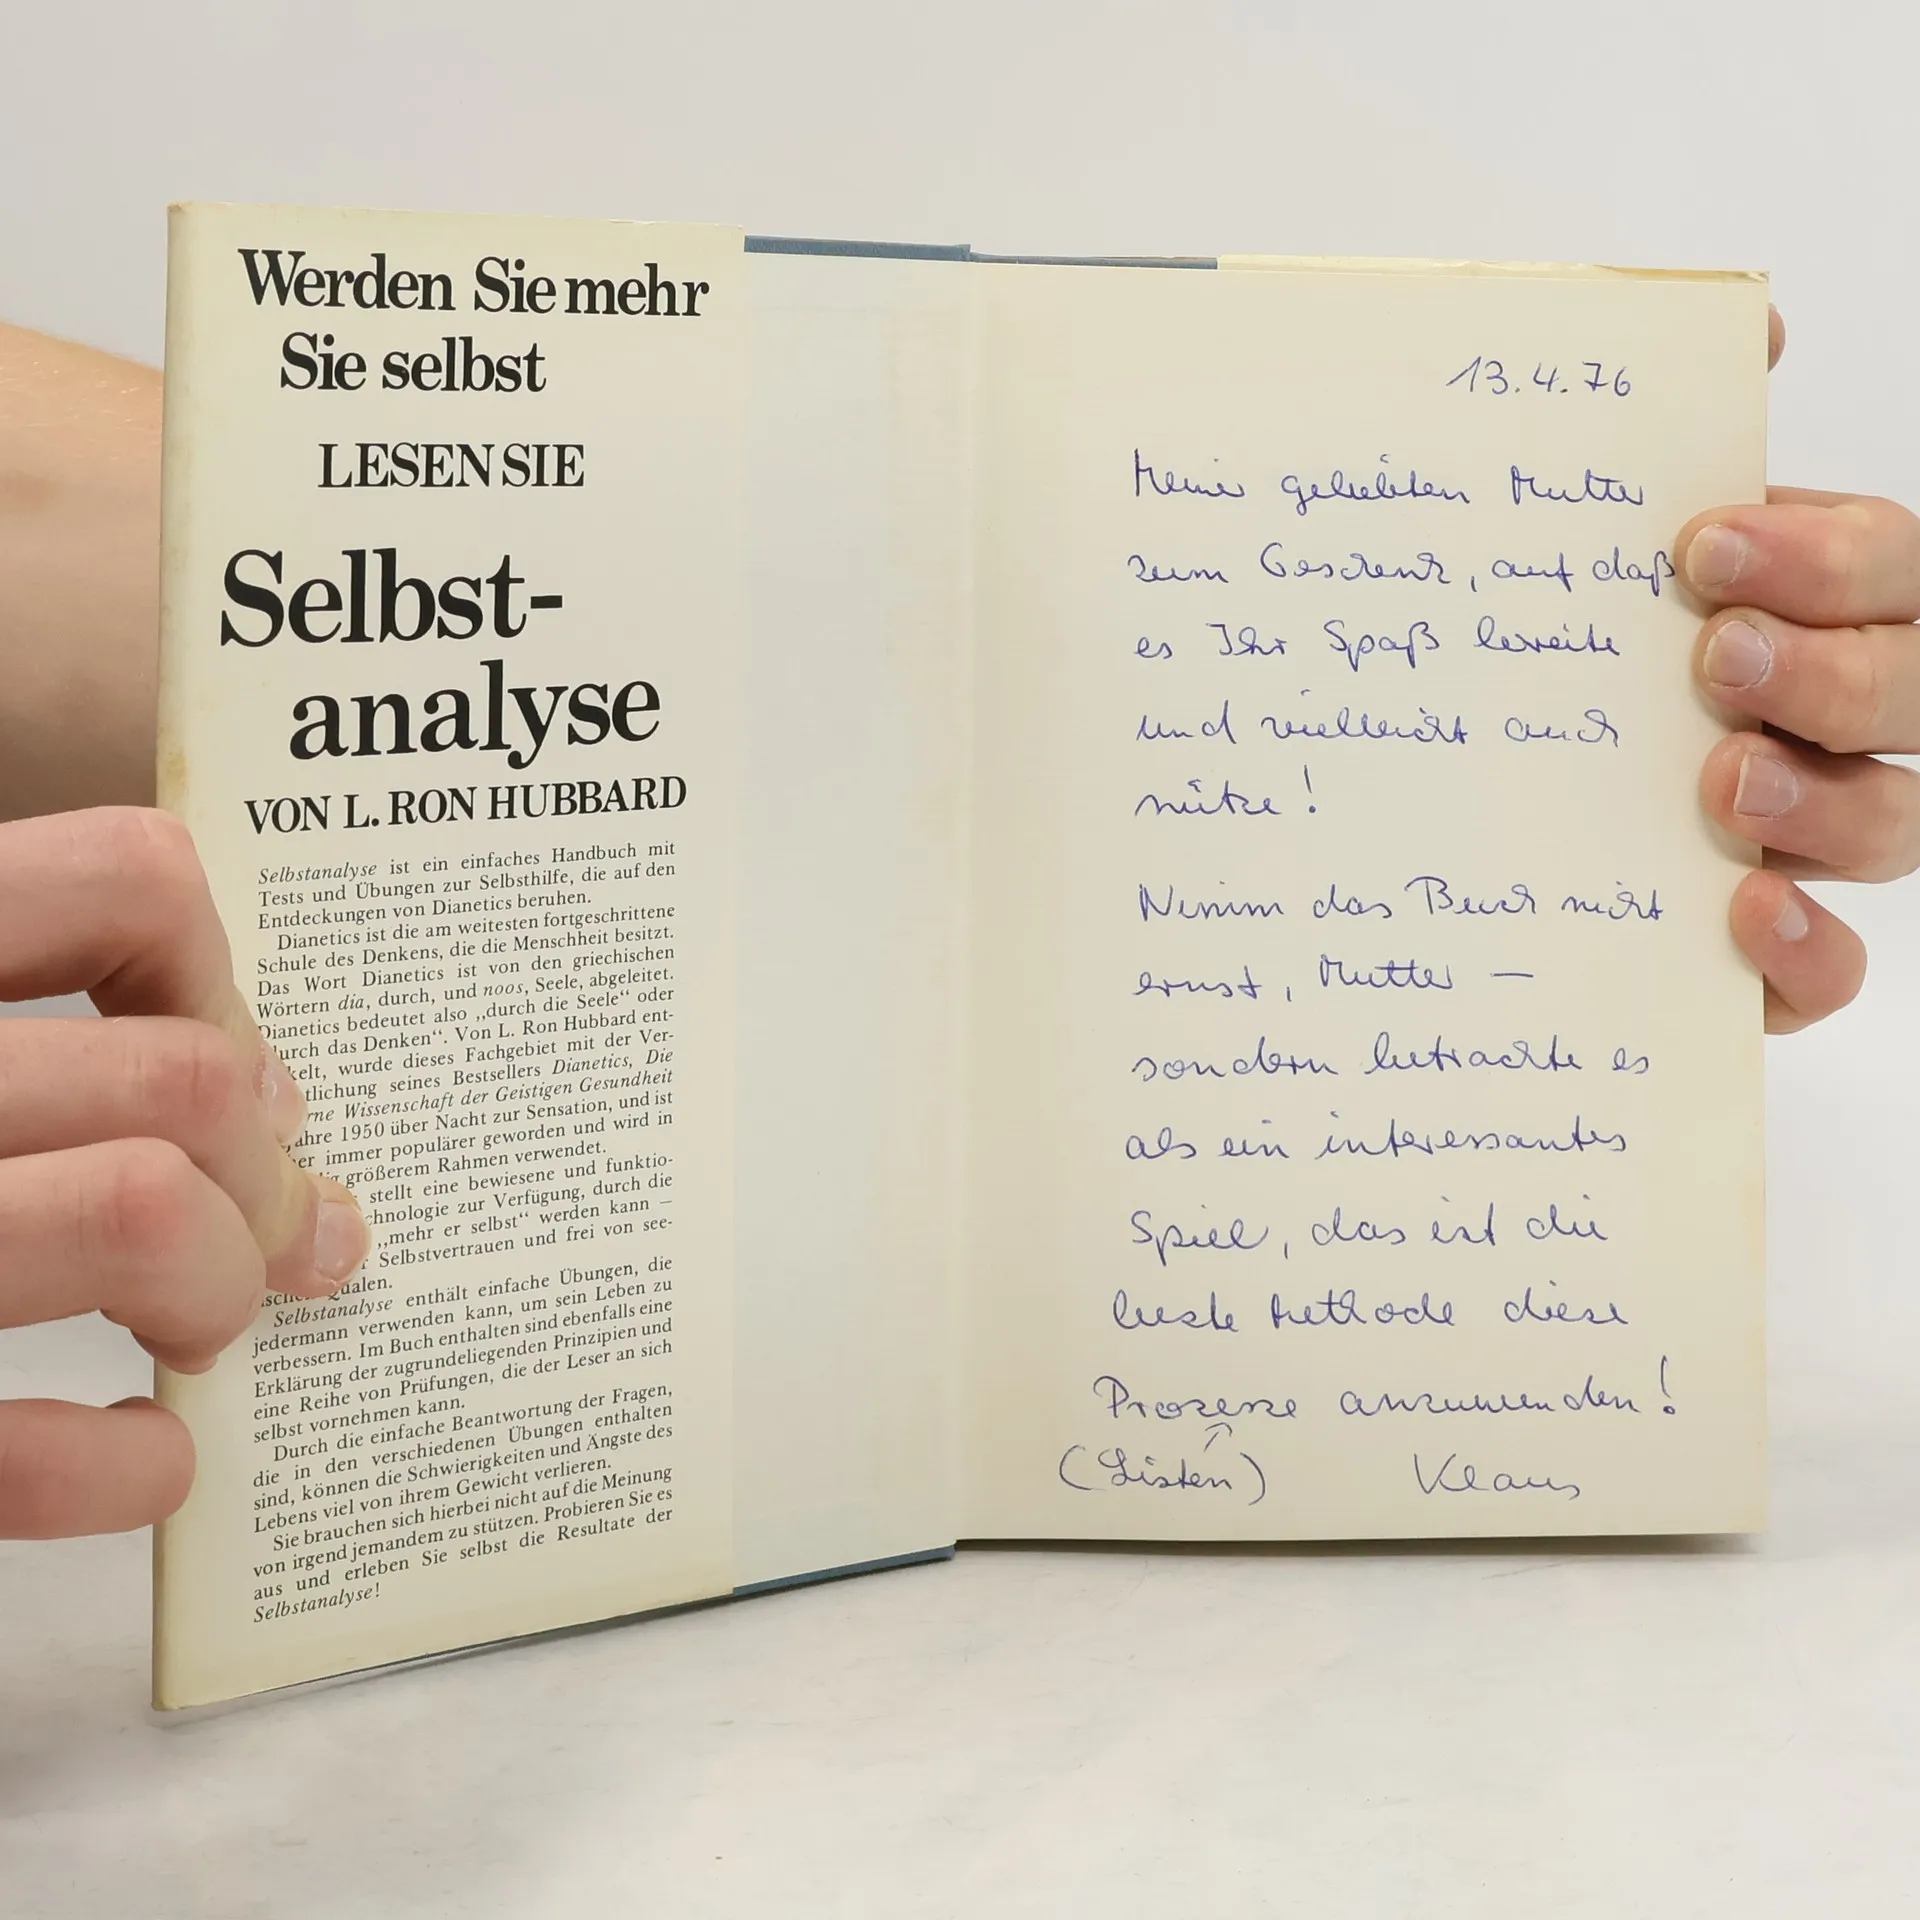 Werden Sie mehr
Sie selbst
LESEN SIE
Selbst-
analyse
VON L. RON HUBBARD
Selbstanalyse ist ein einfaches Handbuch mit
Tests und Übungen zur Selbsthilfe, die auf den
Entdeckungen von Dianetics beruhen.
Dianetics ist die am weitesten fortgeschrittene
Schule des Denkens, die die Menschheit besitzt.
Das Wort Dianetics ist von den griechischen
Wörtern dia, durch, und noos, Seele, abgeleitet.
Dianetics bedeutet also „durch die Seele“ oder
durch das Denken“. Von L. Ron Hubbard ent-
kelt, wurde dieses Fachgebiet mit der Ver-
tlichung seines Bestsellers Dianetics, Die
rne Wissenschaft der Geistigen Gesundheit
Jahre 1950 über Nacht zur Sensation, und ist
er immer populärer geworden und wird in
ig größerem Rahmen verwendet.
stellt eine bewiesene und funktio-
chnologie zur Verfügung, durch die
„mehr er selbst“ werden kann —
r Selbstvertrauen und frei von see-
ischen Qualen.
Selbstanalyse enthält einfache Übungen, die
jedermann verwenden kann, um sein Leben zu
verbessern. Im Buch enthalten sind ebenfalls eine
Erklärung der zugrundeliegenden Prinzipien und
eine Reihe von Prüfungen, die der Leser an sich
selbst vornehmen kann.
Durch die einfache Beantwortung der Fragen,
die in den verschiedenen Übungen enthalten
sind, können die Schwierigkeiten und Ängste des
Lebens viel von ihrem Gewicht verlieren.
Sie brauchen sich hierbei nicht auf die Meinung
von irgend jemandem zu stützen. Probieren Sie es
aus und erleben Sie selbst die Resultate der
Selbstanalyse!
13.4.76
Meiner geliebten Mutter
zum Geschenk, auf daß
es Ihr Spaß bereite
und vielleicht auch
nütze!
Nimm das Buch nicht
ernst, Mutter —
sondern betrachte es
als ein interessantes
Spiel, das ist die
beste Methode diese
Prozesse anzuwenden!
(Listen) Klaus